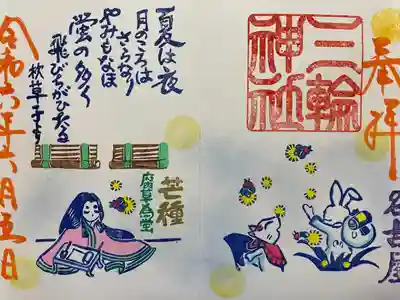 奉拝
三輪
神社
名古屋
夏は夜
月のころは
さらなり
やみもなほ
蛍の多く
飛びちがひたる
枕草子より
芒種
腐草為螢
令和六年六月五日